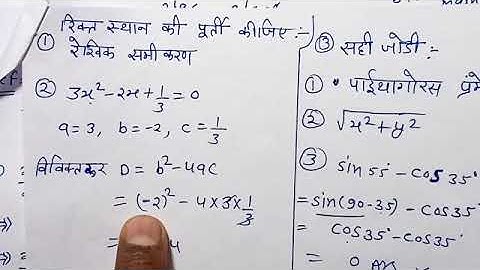 रिक्त स्थान की पूर्ती कीजिए:-
① रेखिक समीकरण
② 3x²-2x+1/3=0
a=3, b=-2, c=1/3
विविक्तकर D= b²-4ac
= (-2)² - 4×3×1/3
= 4
③ सही जोडी:-
① • पाईथागोरस प्रमे
② √x²+y²
③ sin 55° - cos 35°
= sin(90-35) - cos 35°
cos 35° - cos 35°
= 0 Ans